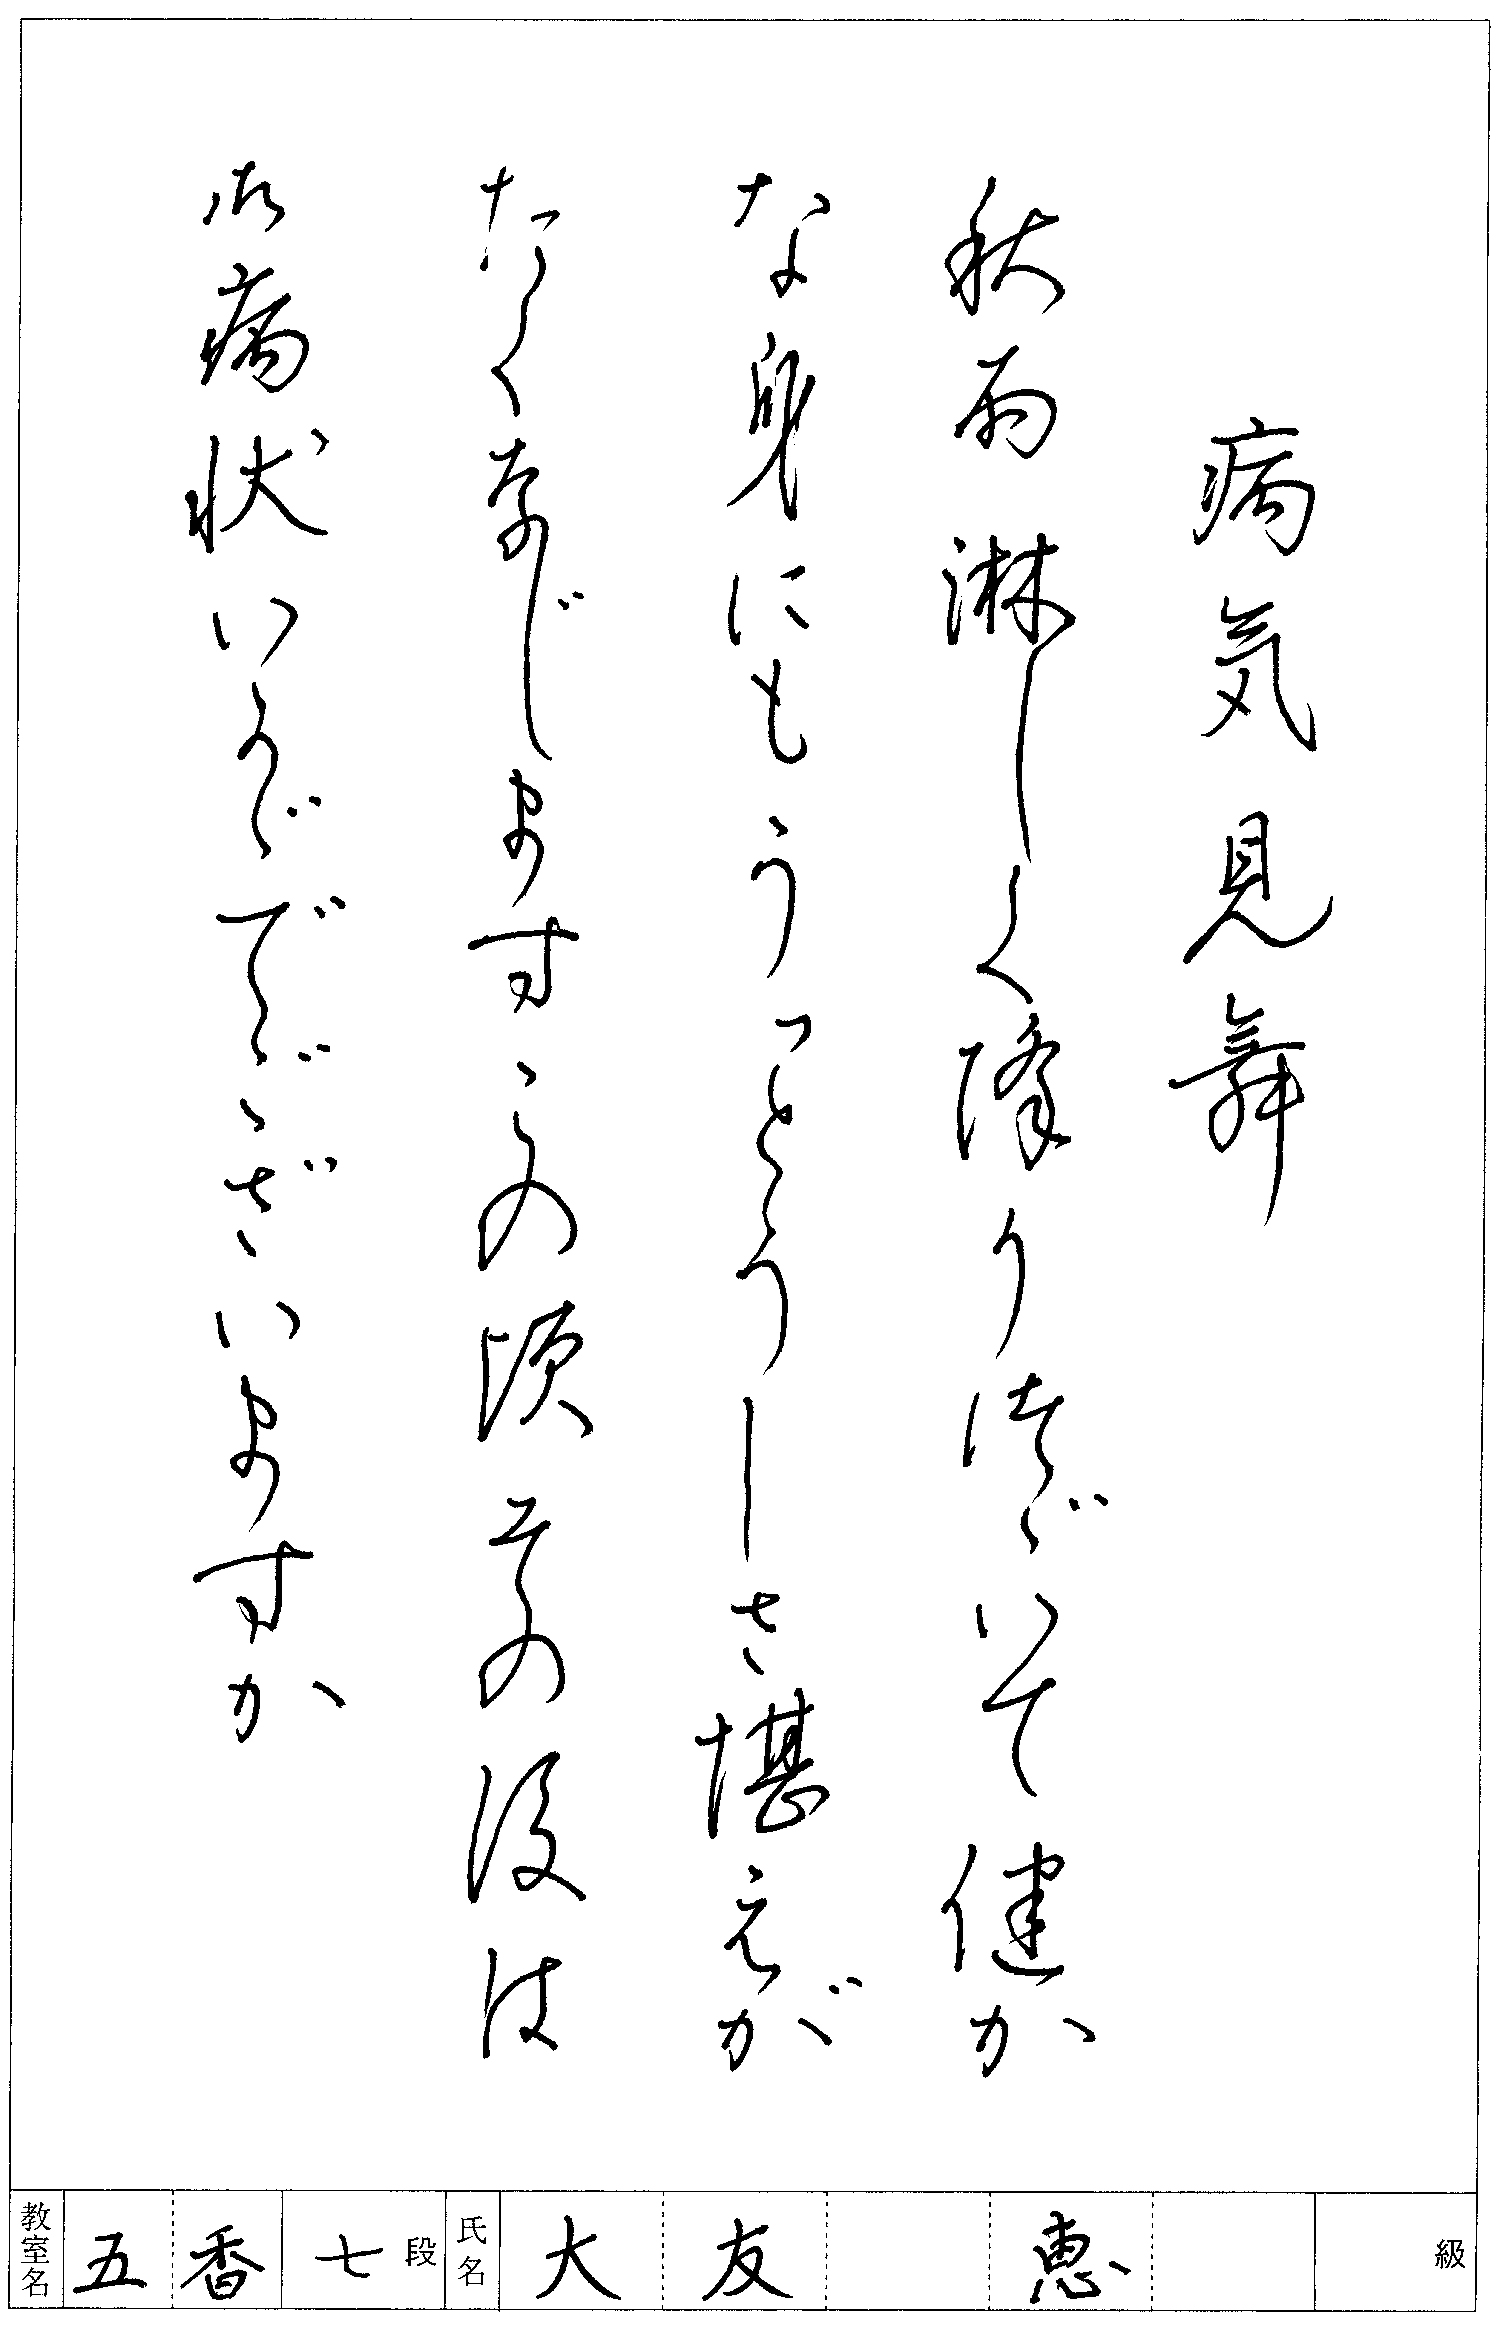 病気見舞
秋雨淋しく降りつづいて健か
な身にもうっとうしさ堪えが
たく存じますこの頃その後は
御病状いかゞでございますか
教室名 五香 七段 氏名 大友 恵 級